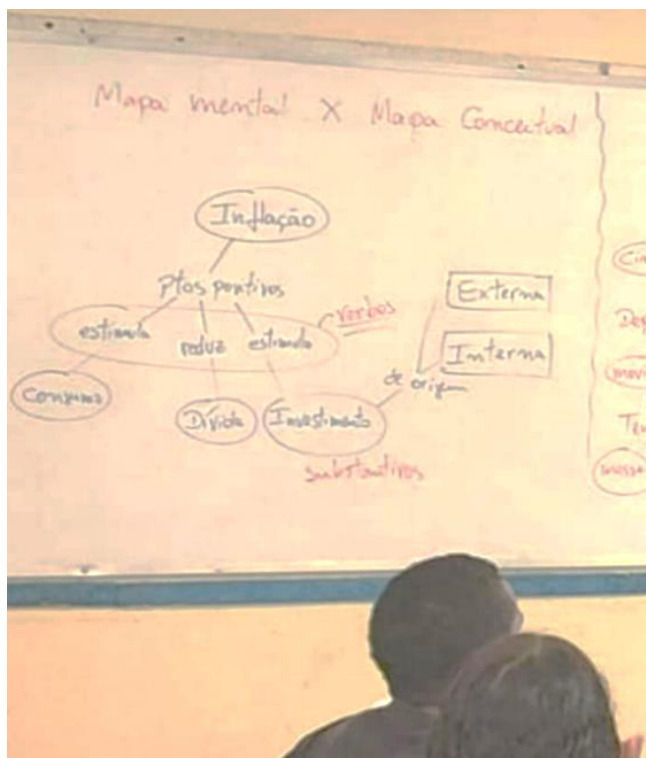 Mapa mental X Mapa Conceitual
Inflação
Ptos positivos
estimula
reduz
estimula
verbos
Consumo
Dívida
Investimento
de origem
Externa
Interna
substantivos